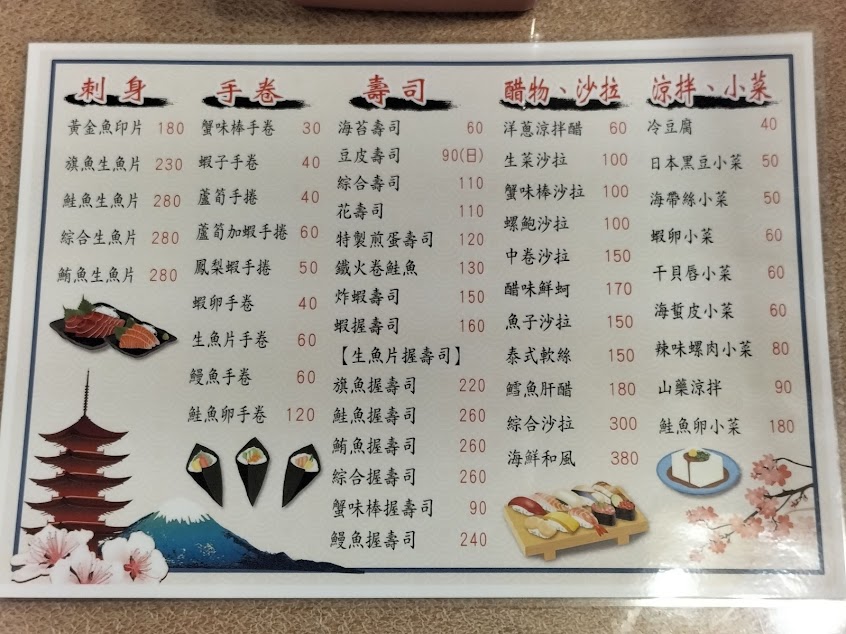 刺身
黃金魚印片 180
旗魚生魚片 230
鮭魚生魚片 280
綜合生魚片 280
鮪魚生魚片 280
手卷
蟹味棒手卷 30
蝦子手卷 40
蘆筍手捲 40
蘆筍加蝦手卷 60
鳳梨蝦手捲 50
蝦卵手卷 40
生魚片手卷 60
鰻魚手卷 60
鮭魚卵手卷 120
壽司
海苔壽司 60
豆皮壽司 90(日)
綜合壽司 110
花壽司 110
特製煎蛋壽司 120
鐵火卷鮭魚 130
炸蝦壽司 150
蝦握壽司 160
【生魚片握壽司】
旗魚握壽司 220
鮭魚握壽司 260
鮪魚握壽司 260
綜合握壽司 260
蟹味棒握壽司 90
鰻魚握壽司 240
醋物、沙拉
洋蔥涼拌醋 60
生菜沙拉 100
蟹味棒沙拉 100
螺鮑沙拉 100
中卷沙拉 150
醋味鮮蚵 170
魚子沙拉 150
泰式軟絲 150
鱈魚肝醋 180
綜合沙拉 300
海鮮和風 380
涼拌、小菜
冷豆腐 40
日本黑豆小菜 50
海帶絲小菜 50
蝦卵小菜 60
干貝唇小菜 60
海蜇皮小菜 60
辣味螺肉小菜 80
山藥涼拌 90
鮭魚卵小菜 180